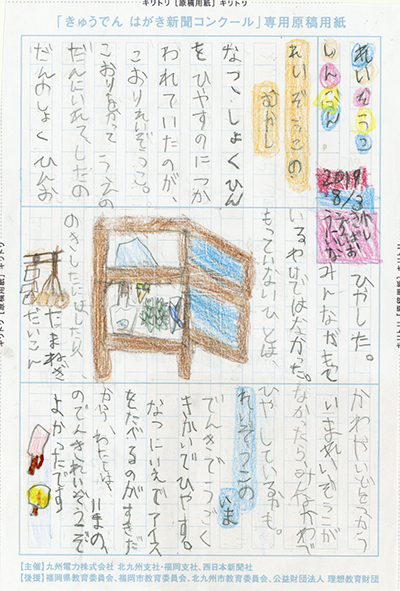 キリトリ【原稿用紙】キリトリ
「きゅうでん はがき新聞コンクール」専用原稿用紙
れいぞうこ
しんぶん
2019
8/3
れいぞうこの
むかし
なつ、しょくひん
をひやすのにつか
われていたのが、
こおりれいぞうこ。
うえの
だんにいれて、したの
だんのしょくひんを
ひやした。
みんながもって
いるわけではなかった。
もっていないひとは、
のきしたに
たまねぎ
かわやいどをつかう
いまれいぞうこが
なかったらみんなかわで
ひやしているかも。
れいぞうこの
いま
でんきでうごく
きかいでひやす。
なつにいえでアイス
をたべるのがすきだ
から、わたしは、いまの、
のでんきれいぞうこで
よかったです
【主催】九州電力株式会社 北九州支社・福岡支社、西日本新聞社
【後援】福岡県教育委員会、福岡市教育委員会、北九州市教育委員会、公益財団法人 理想教育財団
キリトリ【原稿用紙】キリトリ
キリトリ【原稿用紙】キリトリ